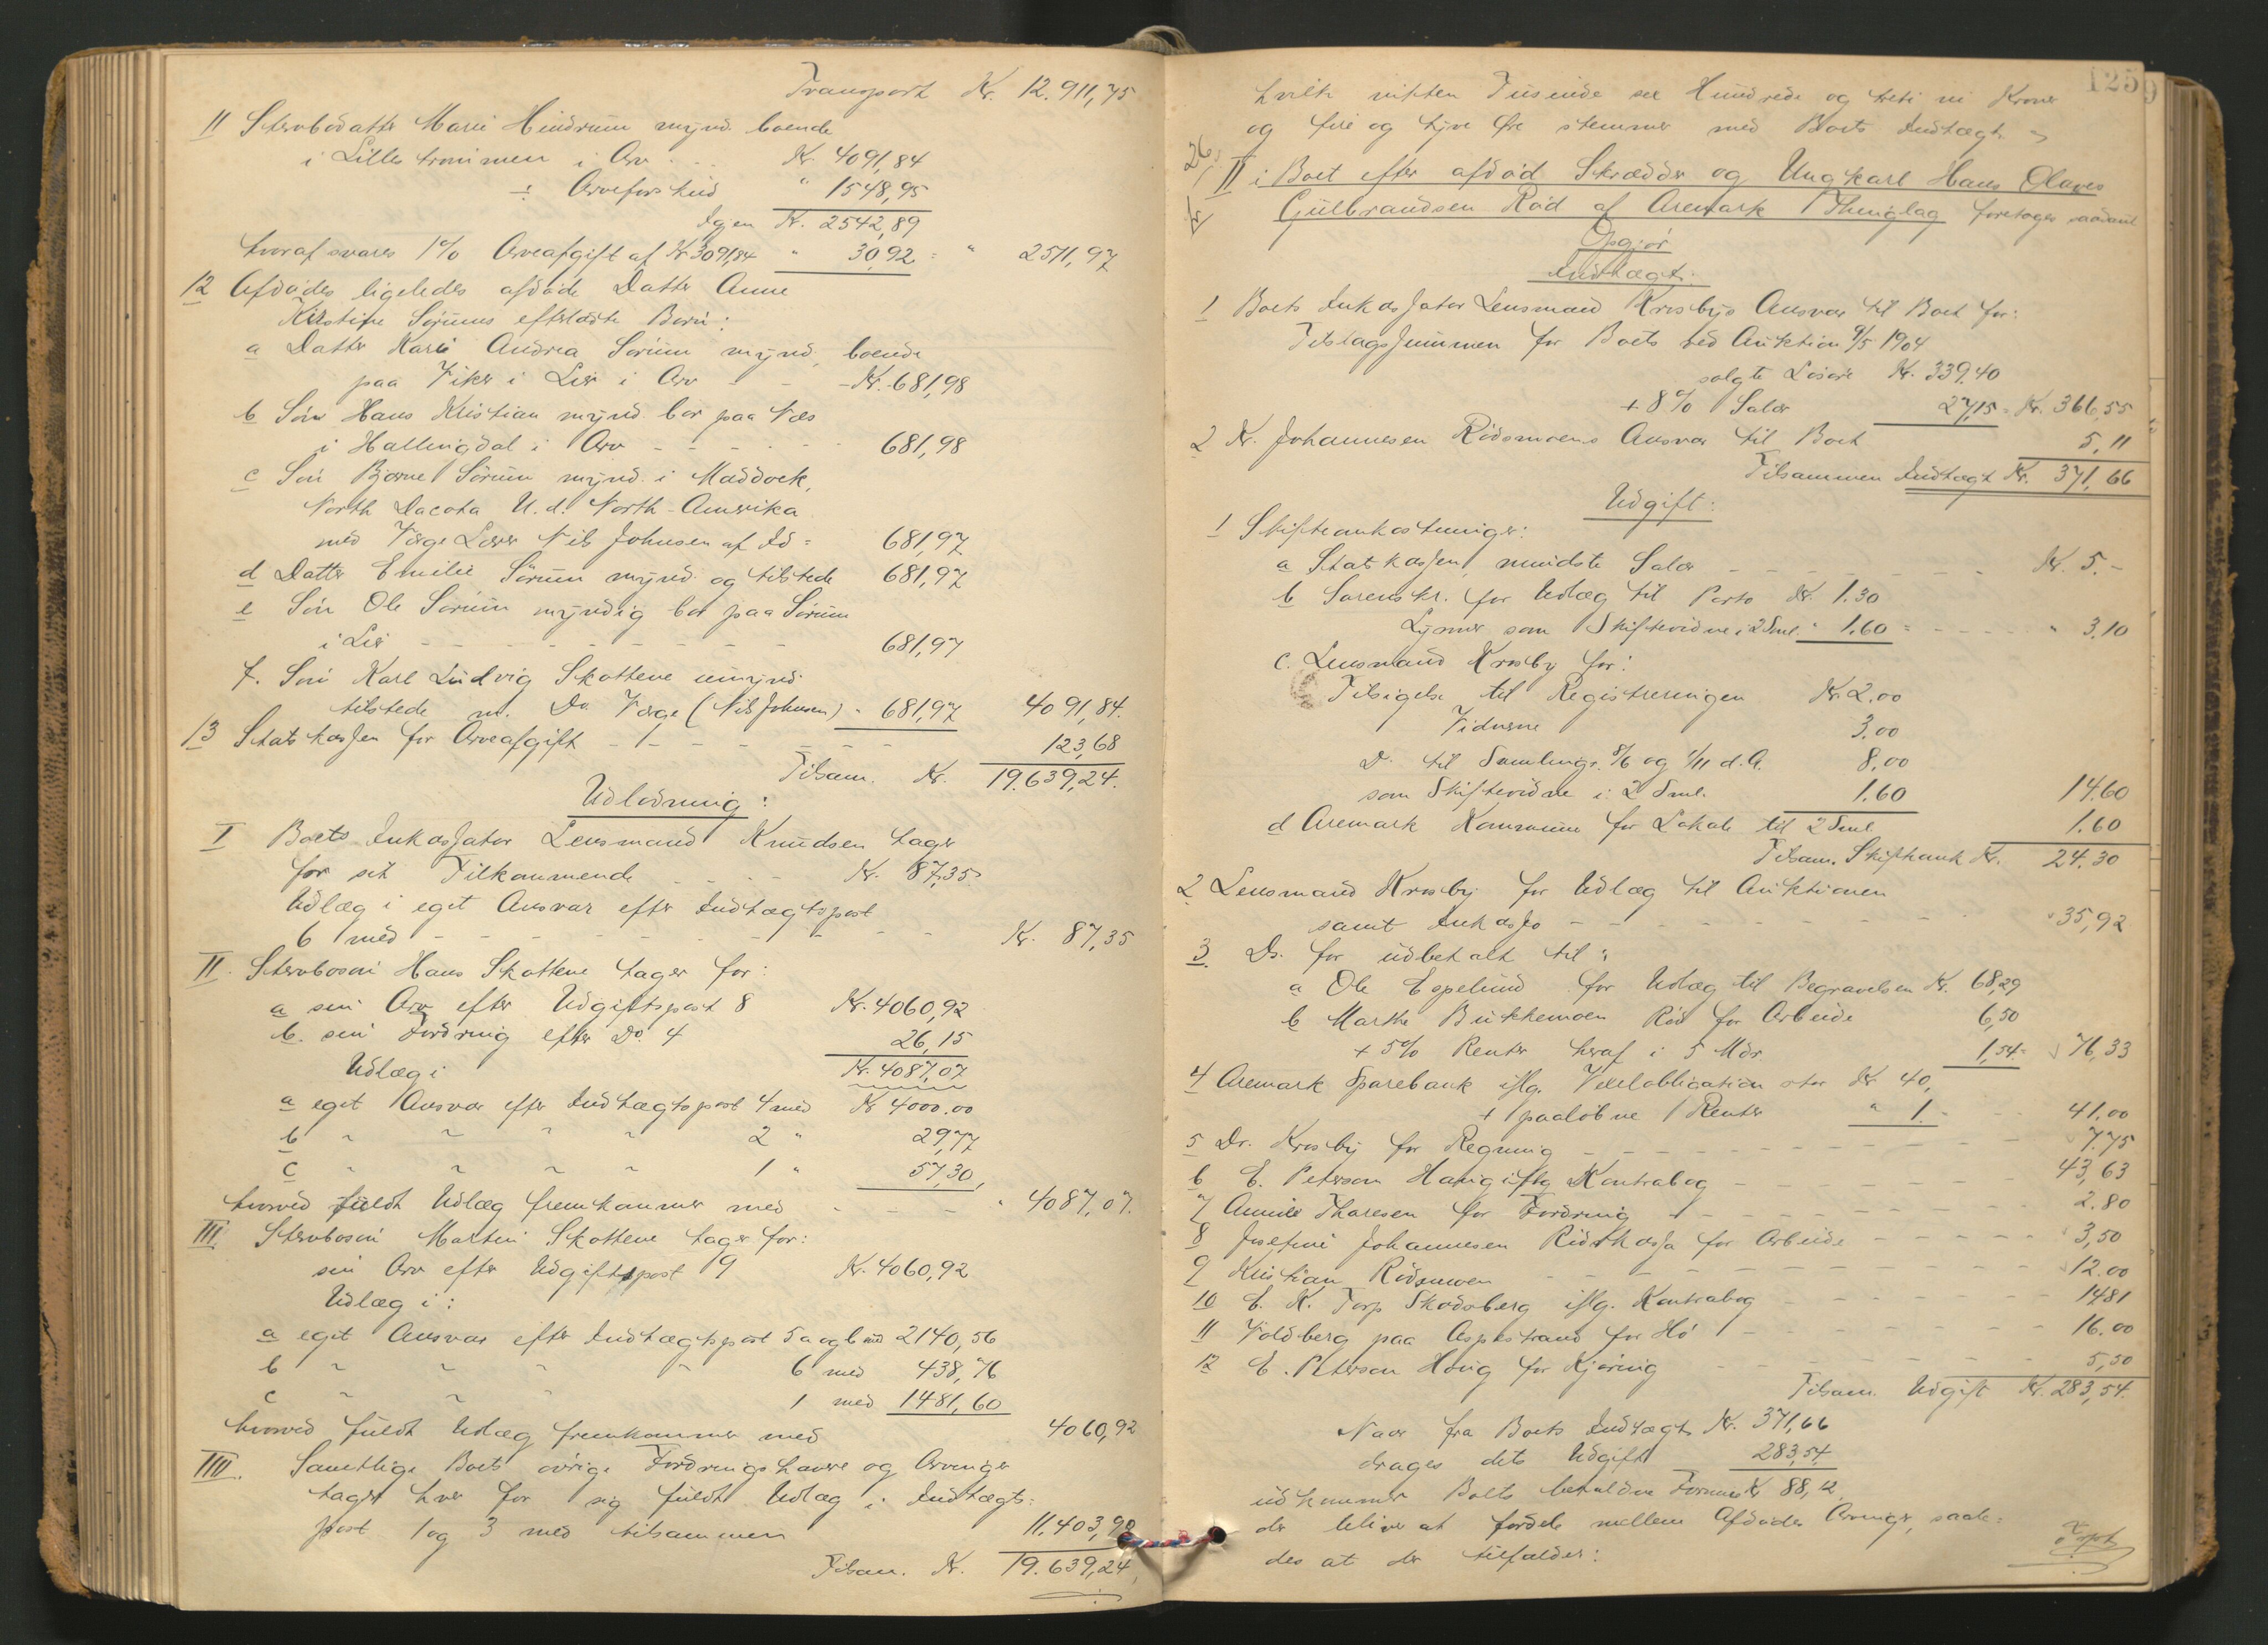 Transport Kr. 12.911,75
11 Stervbodatter Marie Hindrum mynd. boende
i Lilletrommen i Arv - - - Kr. 4091,84
÷ Arveforskud " 1548,95
Igen Kr. 2542,89
hvoraf svares 1% Arveafgift af Kr 3091,84 " 30,92 = " 2511,97
12 Afdødes ligeledes afdøde Datter Anne
Kirstine Sørums efterladte Børn:
a Datter Karie Andrea Sørum mynd. boende
paa Viker i Lier i Arv - - - Kr. 681,98
b Søn Hans Kristian mynd. bor paa Næs
i Hallingdal i Arv - - - - - 681,98
c Søn Bjarne Sørum mynd. i Maddock,
North Dacota U. d. North-Amerika
med Værge Lærer Nils Johnsen af Id = 681,97
d Datter Emilie Sörum mynd. og tilstede 681,97
e Søn Ole Sørum myndig bor paa Sørum
i Lier - - - - - - - - 681,97
f. Søn Karl Ludvig Skottene umynd.
tilstede m. Do Værge (Nils Johnsen) " 681,97 4091,84.
13 Statskassen for Arveafgift - - - - - - - 123,68
Tilsam. Kr. 19.639,24.
Udlodning:
I Boets Inkassator Lensmand Knudsen tager
for sit Tilkommende - - - - Kr. 87,35
Udlæg i eget Ansvar efter Indtægtspost
6 med - - - - - - - - - - Kr. 87,35
II. Stervbosøn Hans Skottene tager for:
a sin Arv efter Udgiftspost 8 Kr. 4060,92
b. sin Fordring efter Do. 4 26,15
Udlæg i Kr. 4087,07
a eget Ansvar efter Indtægtspost 4 med Kr 4000.00
b " " " " 2 " 29,77
c " " " " 1 " 57,30,
hvorved fuldt Udlæg fremkommer med - - - - " 4087,07.
III Stervbosøn Martin Skottene tager for:
sin Arv efter Udgiftspost 9 Kr. 4060,92
Udlæg i:
a eget Ansvar efter Indtægtspost 5 a og b med 2140,56
b " " " " 6 med 438,76
c " " " 1 med 1481,60
hvorved fuldt Udlæg fremkommer med 4060,92
IIII. Samtlige Boets øvrige Fordringshavere og Arvinger
tager hver for sig fuldt Udlæg i Indtægts-
post 1 og 3 med tilsammen 11.403,90
Tilsam. Kr. 19.639,24,
1259
hvilke nitten Tusinde sex Hundrede og treti ni Kroner
og fire og tyve Øre stemmer med Boets Indtægt.
26,
II i Boet efter afdød Skrædder og Ungkarl Hans Olaves
Gulbrandsen Rød af Aremark Thinglag foretages saadant
Opgjør
Indtægt:
1 Boets Inkassator Lensmand Krosbys Ansvar til Boet for:
Tilslagssummen for Boets ved Auktion 9/5 1904
solgte Løsøre Kr. 339,40
+ 8% Salær 27,15 = Kr. 366,55
2 N. Johannesen Rødsmoens Ansvar til Boet 5,11
Tilsammen Indtægt Kr. 371,66
Udgift:
1 Skifteomkostninger:
a Statskassen, mindste Salær - - - - - - - Kr. 5.-
b Sorenskr. for Udlæg til Porto Kr. 1.30
Lysner som Skiftevidne i 2 Sml. " 1,60 = - - - - - " 3,10
c. Lensmand Krosby for:
Tilsigelse til Registreringen Kr. 2.00
Vidnerne 3.00
Do til Samlinger 8/6 og 1/11 d. A. 8,00
som Skiftevidne i 2 Sml. 1.60 14.60
d Aremark Kommune for Lokale til 2 Sml 1.60
Tilsam. Skifteomk Kr. 24.30
2 Lensmand Krosby for Udlæg til Auktionen
samt Inkasso - - - - - - - - 35,92
3. Do. for udbetalt til:
a Ole Espelund for Udlæg til Begravelsen Kr. 68,29
b Marthe Bukkemoen Rød for Arbeide 6,50
+ 5% Renter heraf i 5 Mdr. 1,54 = 76,33
4 Aremark Sparebank iflg. Vexelobligation stor Kr 40,
+ paaløbne Renter " 1. - - - 41.00
5 Dr. Krosby for Regning - - - - - - - - 7.75
6 E. Peterson Haug iflg Kontrabog - - - - - - - 43,63
7 Annie Tharesen for Fordring - - - - - - - - 2.80
8 Josefine Johannesen Rødskassa for Arbeide - - - - - 3,50
9 Kristian Rødsmoen - - - - - - - - - - 12.00
10 E. K. Torp Skodsberg iflg. Kontrabog - - - - - - 1481
11 Voldberg paa Aspestrand for Hø - - - - - - - 16.00
12 E. Peterson Houg for Kjøring - - - - - - - - 5,50
Tilsam. Udgift Kr. 283,54.
Naar fra Boets Indtægt Kr. 371,66
drages dets Udgift 283,54
udkommer Boets beholdne Formue Kr 88,12
der bliver at fordele mellem Afdødes Arvinger, saale-
des at der tilfalder: